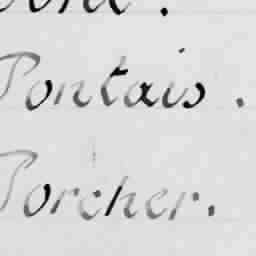 Pontais.
Porcher.